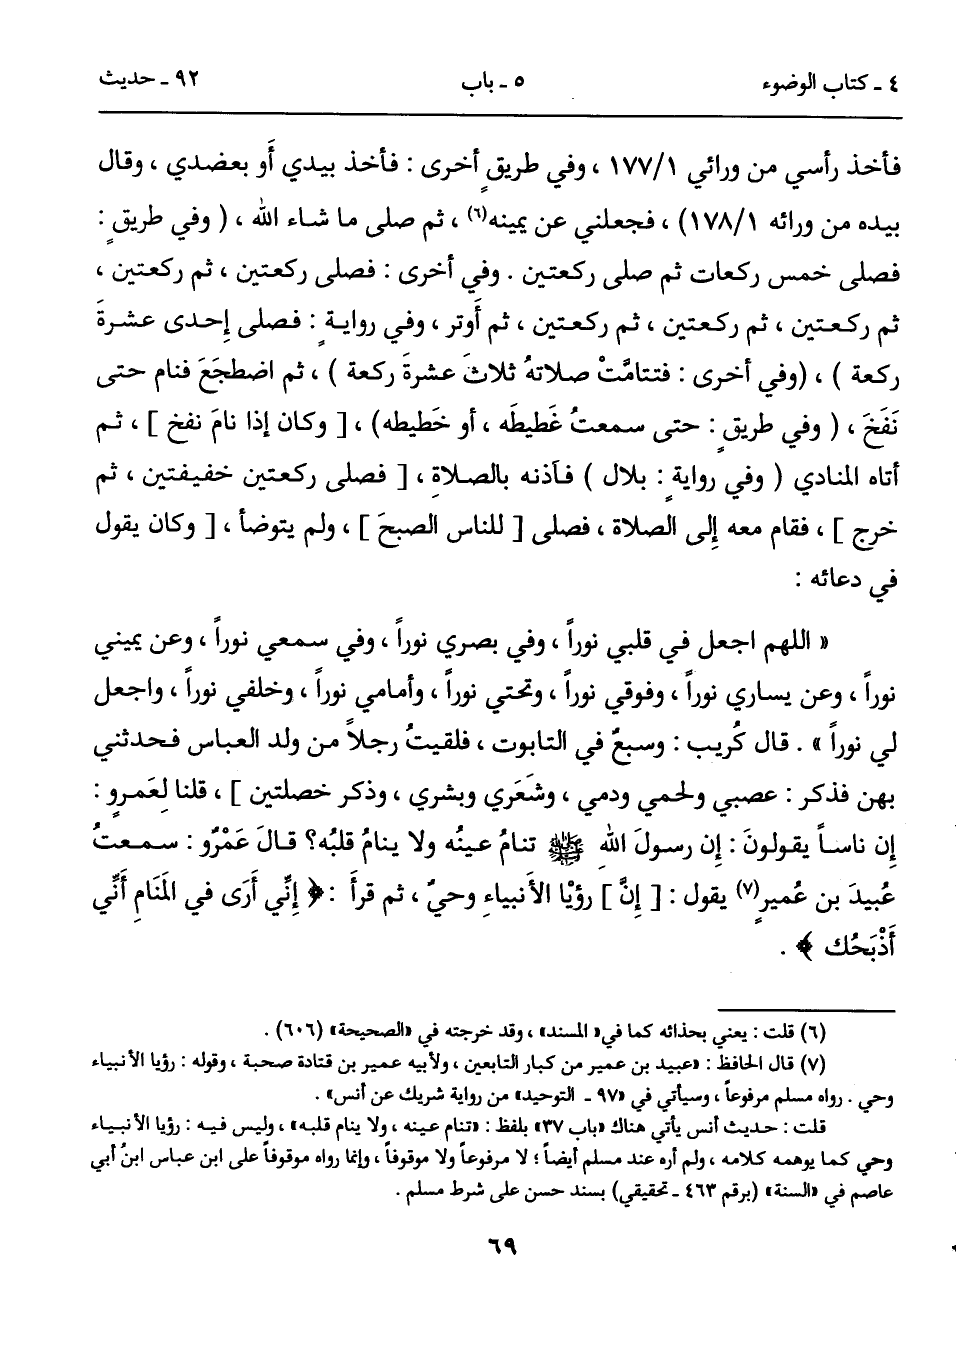 ٤ ـ كتاب الوضوء ٥ ـ باب ٩٢ ـ حديث
فأخذ رأسي من ورائي ١/١٧٧ ، وفي طريقٍ أخرى : فأخذ بيدي أَو بعضدي ، وقال
بيده من ورائه ١/١٧٨) ، فجعلني عن يمينه(٦) ، ثم صلى ما شاء الله ، ( وفي طريقٍ :
فصلى خمس ركعات ثم صلى ركعتين . وفي أخرى : فصلى ركعتين ، ثم ركعتين ،
ثم ركعتين ، ثم ركعتين ، ثم ركعتين ، ثم أَوتر ، وفي روايةٍ : فصلى إِحدى عشرةَ
ركعة ) ، (وفي أخرى : فتتامَّتْ صلاتهُ ثلاثَ عشرةَ ركعة ) ، ثم اضطجَعَ فنام حتى
نَفَخَ ، ( وفي طريقٍ : حتى سمعتُ غَطيطَه ، أو خَطيطه) ، [ وكان إذا نامَ نفخ ] ، ثم
أتاه المنادي ( وفي روايةٍ : بلال ) فآذنه بالصلاةِ ، [ فصلى ركعتين خفيفتين ، ثم
خرج ] ، فقام معه إِلى الصلاة ، فصلى [ للناس الصبحَ ] ، ولم يتوضأ ، [ وكان يقول
في دعائه :
« اللهم اجعل في قلبي نوراً ، وفي بصري نوراً ، وفي سمعي نوراً ، وعن يميني
نوراً ، وعن يساري نوراً ، وفوقي نوراً ، وتحتي نوراً ، وأمامي نوراً ، وخلفي نوراً ، واجعل
لي نوراً » . قال كُريب : وسبعٌ في التابوت ، فلقيتُ رجلاً من ولد العباس فحدثني
بهن فذكر : عصبي ولحمي ودمي ، وشَعَري وبشري ، وذكر خصلتين ] ، قلنا لِعَمرٍو :
إِن ناساً يقولونَ : إِن رسولَ اللهِ ﷺ تنامُ عينُه ولا ينامُ قلبُه؟ قالَ عَمْرٌو : سمعتُ
عُبيدَ بن عُميرٍ(٧) يقول : [ إِنَّ ] رؤيْا الأنبياءِ وحيٌ ، ثم قرأَ : ﴿ إِنِّي أَرَى في المَنَامِ أَنِّي
أَذْبَحُك ﴾ .
(٦) قلت : يعني بحذائه كما في« المسند» ، وقد خرجته في «الصحيحة» (٦٠٦) .
(٧) قال الحافظ : «عبيد بن عمير من كبار التابعين ، ولأبيه عمير بن قتادة صحبة ، وقوله : رؤيا الأنبياء
وحي . رواه مسلم مرفوعاً ، وسيأتي في «٩٧ - التوحيد» من رواية شريك عن أنس» .
قلت : حديث أنس يأتي هناك «باب ٣٧» بلفظ : «تنام عينه ، ولا ينام قلبه» ، وليس فيه : رؤيا الأنبياء
وحي كما يوهمه كلامه ، ولم أره عند مسلم أيضاً ؛ لا مرفوعاً ولا موقوفاً ، وإنما رواه موقوفاً على ابن عباس ابنُ أبي
عاصم في «السنة» (برقم ٤٦٣ ـ تحقيقي) بسند حسن على شرط مسلم .
٦٩